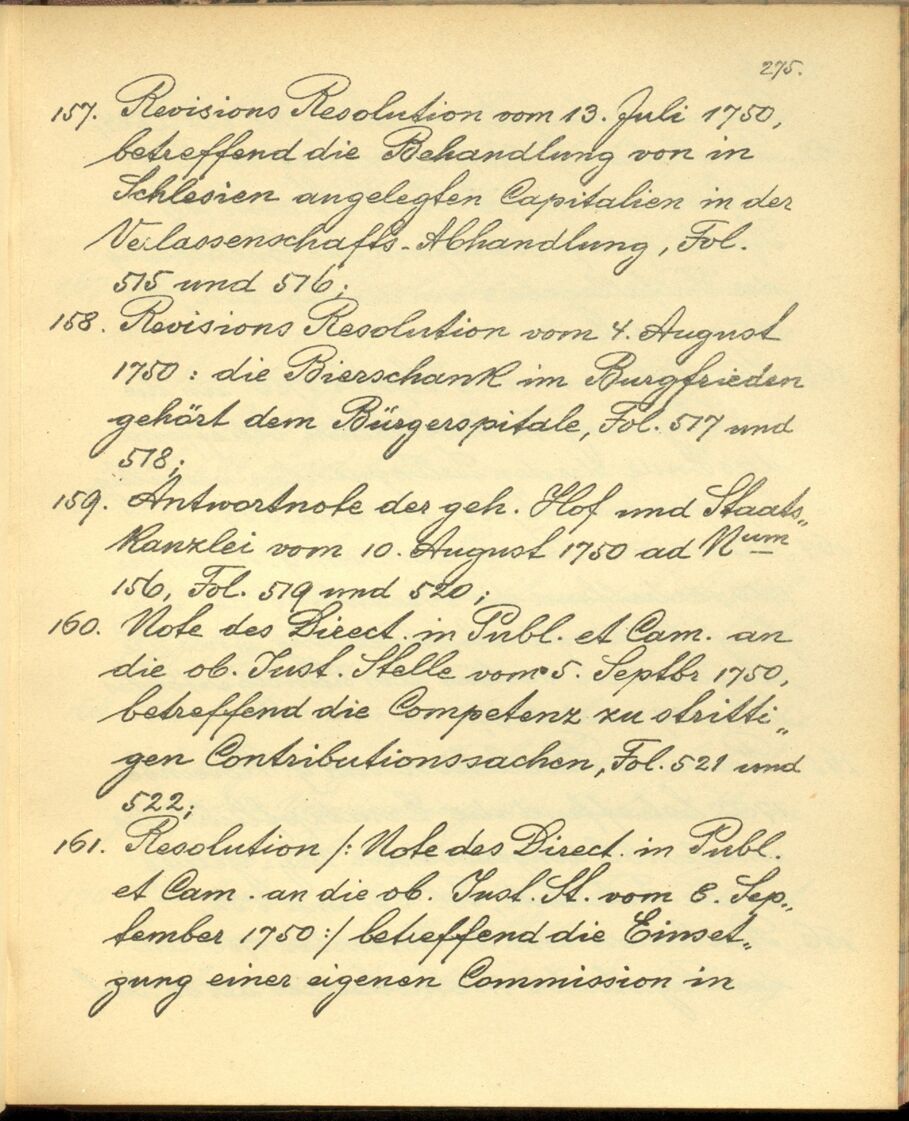 275.
157. Revisions Resolution vom 13. Juli 1750,
betreffend die Behandlung von in
Schlesien angelegten Capitalien in der
Verlassenschafts-Abhandlung, Fol.
515 und 516;
158. Revisions Resolution vom 4. August
1750 : die Bierschank im Burgfrieden
gehört dem Bürgerspitale, Fol. 517 und
518;
159. Antwortnote der geh. Hof und Staats„
kanzlei vom 10. August 1750 ad Num
156, Fol. 519 und 520;
160. Note des Direct. in Publ. et Cam. an
die ob. Just. Stelle vom 5. Septbr 1750,
betreffend die Competenz zu stritti„
gen Contributionssachen, Fol. 521 und
522;
161. Resolution /: Note des Direct. in Publ.
et Cam. an die ob. Just. St. vom 8. Sep„
tember 1750 :/ betreffend die Einset„
zung einer eigenen Commission in